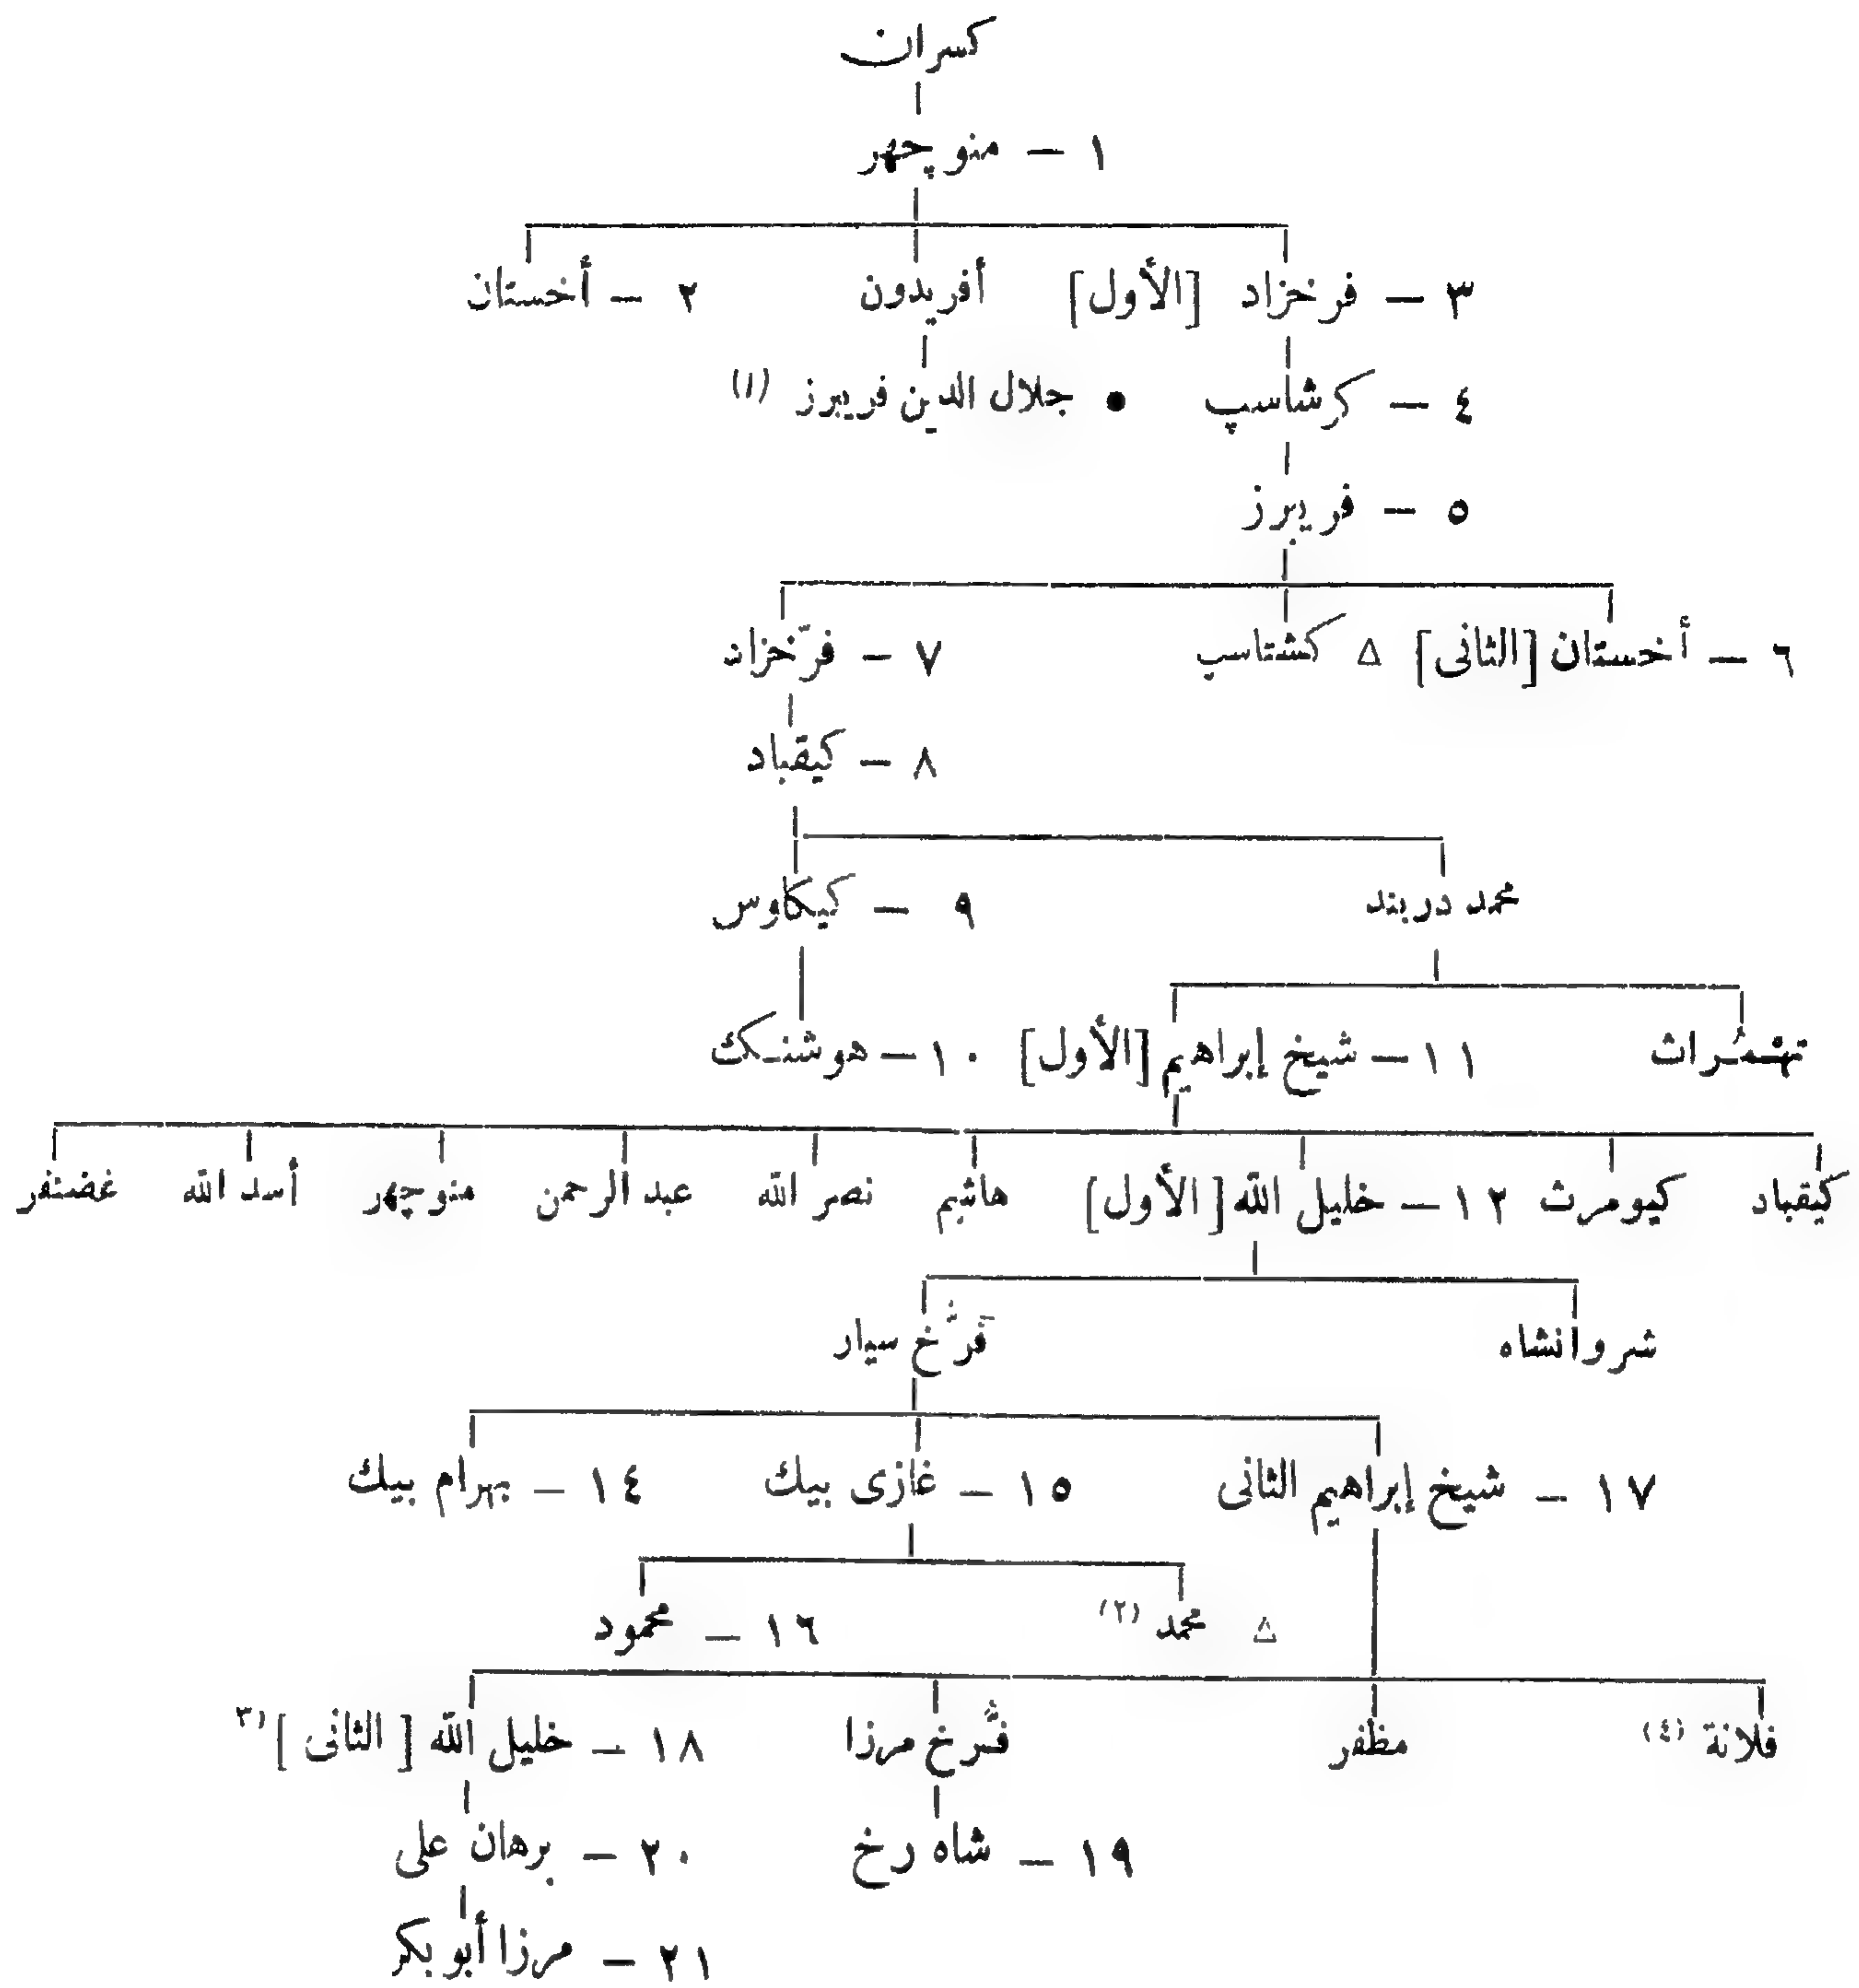 كسران
١ — منوچهر
٣ — فرخزاد [الأول] أفريدون ٢ — أخستان
٤ — كرشاسپ • جلال الدين فريبرز (١)
٥ — فريبرز
٦ — أخستان [الثانى] △ كشتاسب ٧ — فرّخزاد
٨ — كيقباد
محمد دربند ٩ — كيكاوس
تهمُراث ١١ — شيخ إبراهيم [الأول] ١٠ — هوشنك
كيقباد كيومرث ١٢ — خليل الله [الأول] هاشم نصر الله عبد الرحمن منوچهر أسد الله غضنفر
شروانشاه فَرُّخ سيار
١٧ — شيخ إبراهيم الثانى ١٥ — غازى بيك ١٤ — بهرام بيك
△ محمد (٢) ١٦ — محمود
فلانة (٤) مظفر فرُّخ مرزا ١٨ — خليل الله [الثانى] (٣
١٩ — شاه رخ ٢٠ — برهان على
٢١ — مرزا أبو بكر